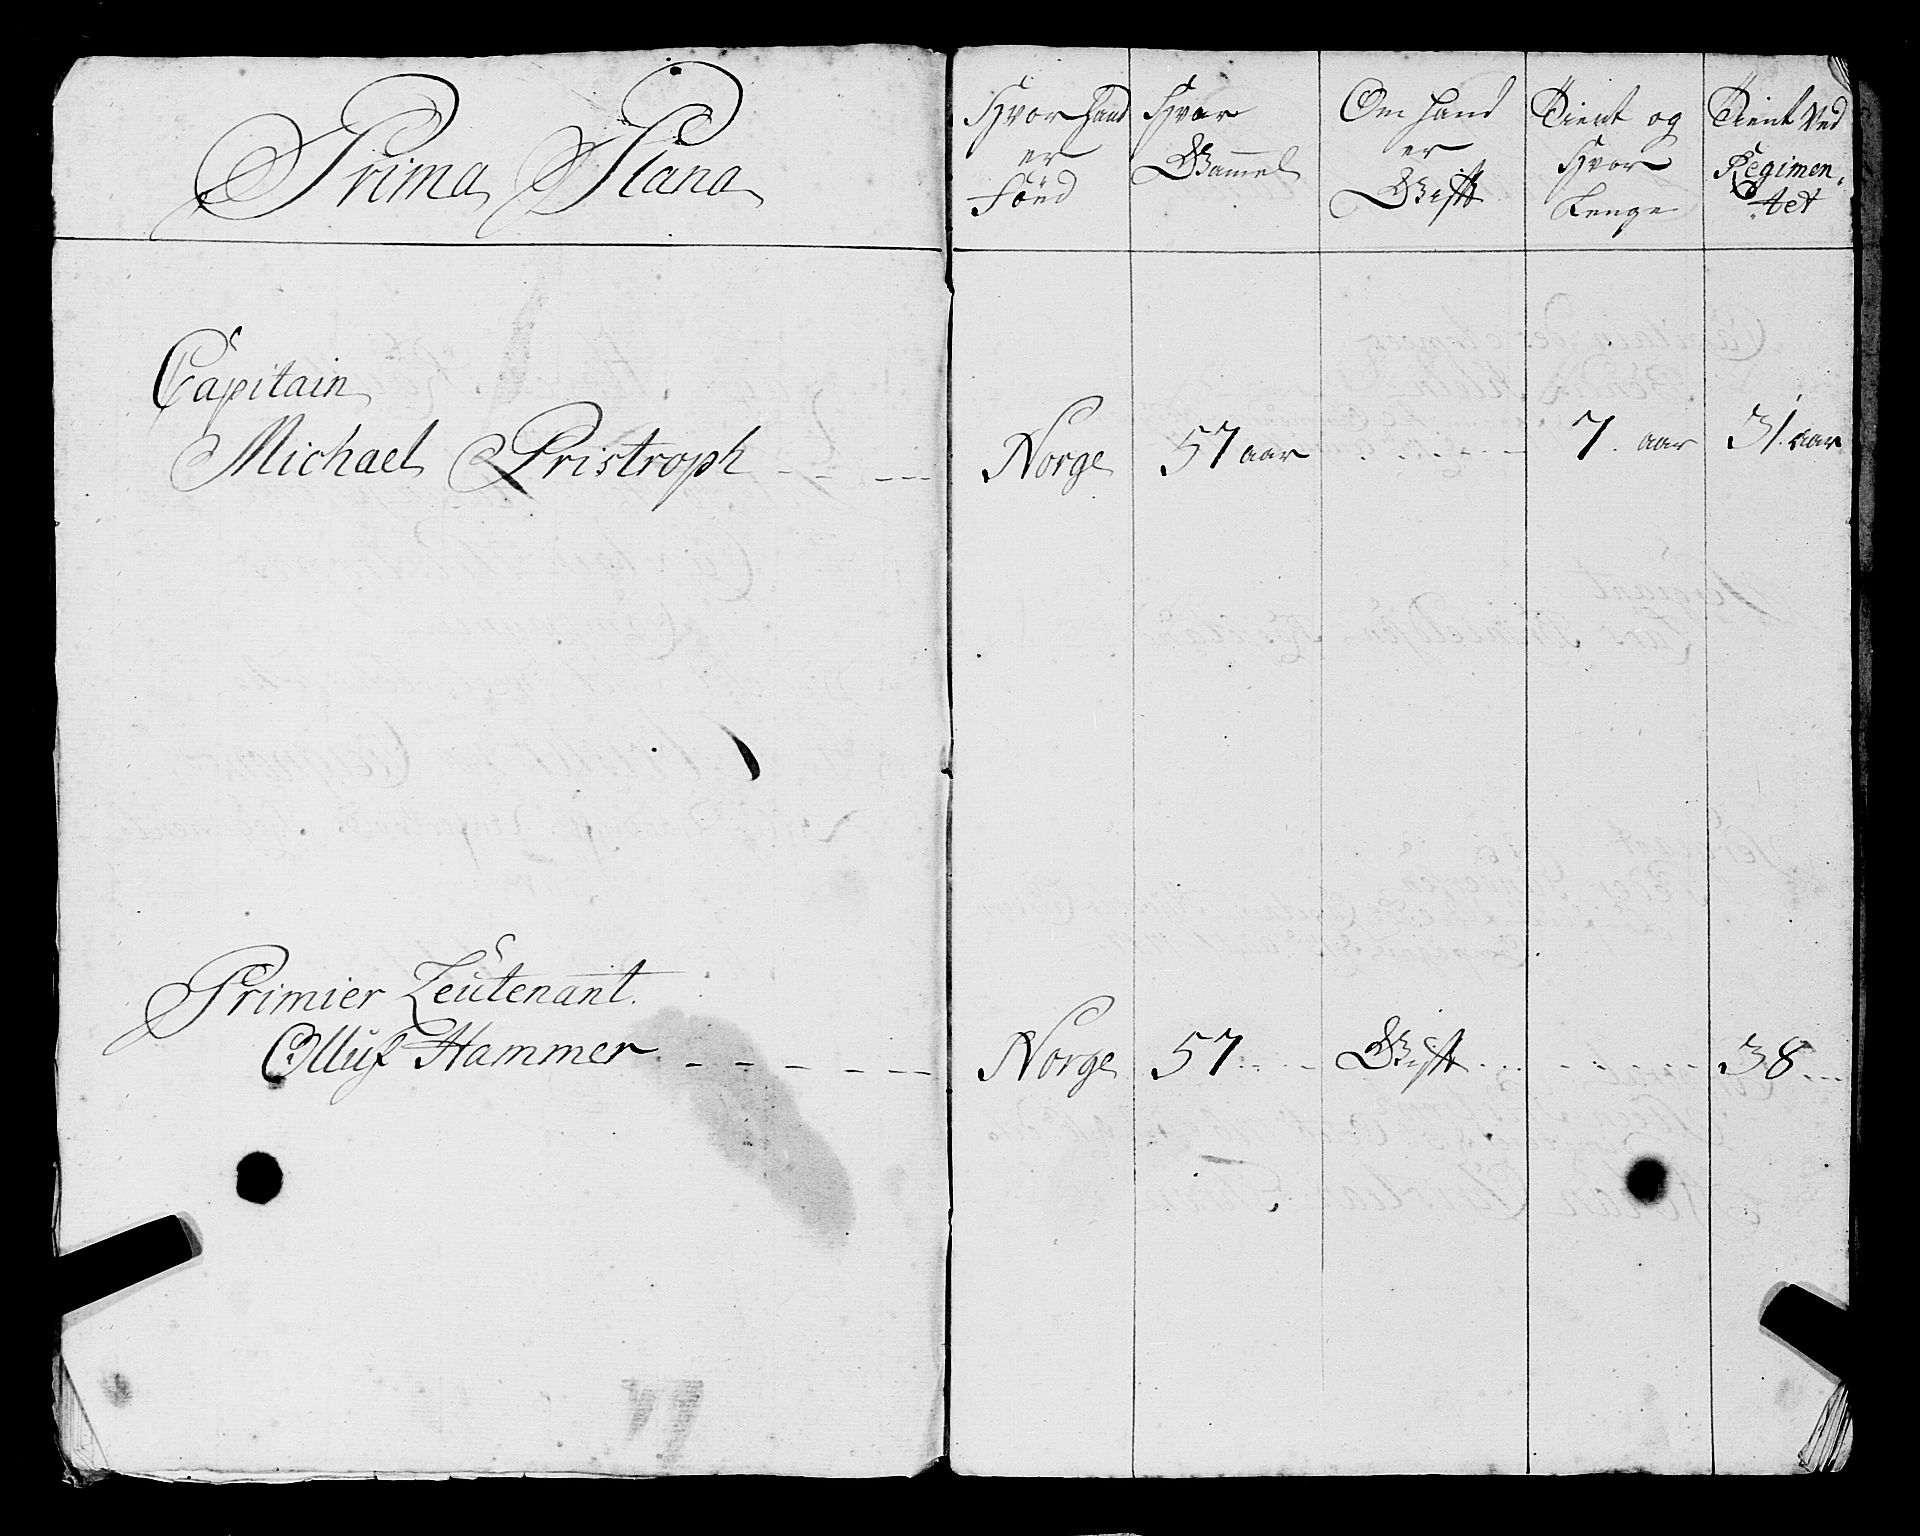 Prima Plana
Hvor hand er Föed
Hvor Gammel
Om hand er Gift
Tient og Hvor Lenge
Tient Ved Regimentet
Capitain
Michael Pristroph Norge 57 aar 7. aar 31. aar
Primier Leütenant.
Olluf Hammer Norge 57 Gift 38